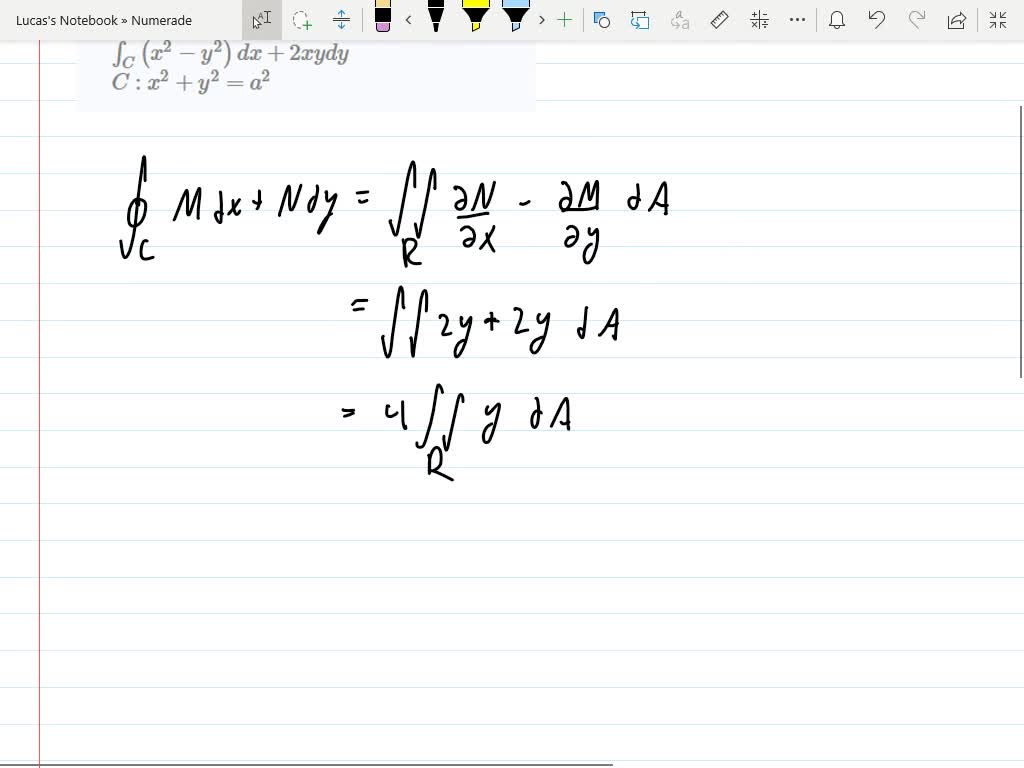 Lucas's Notebook » Numerade
∫_C (x² − y²) dx + 2xydy
C : x² + y² = a²
∮_C M dx + N dy = ∬_R ∂N/∂x - ∂M/∂y dA
= ∬ 2y + 2y dA
= 4 ∬_R y dA